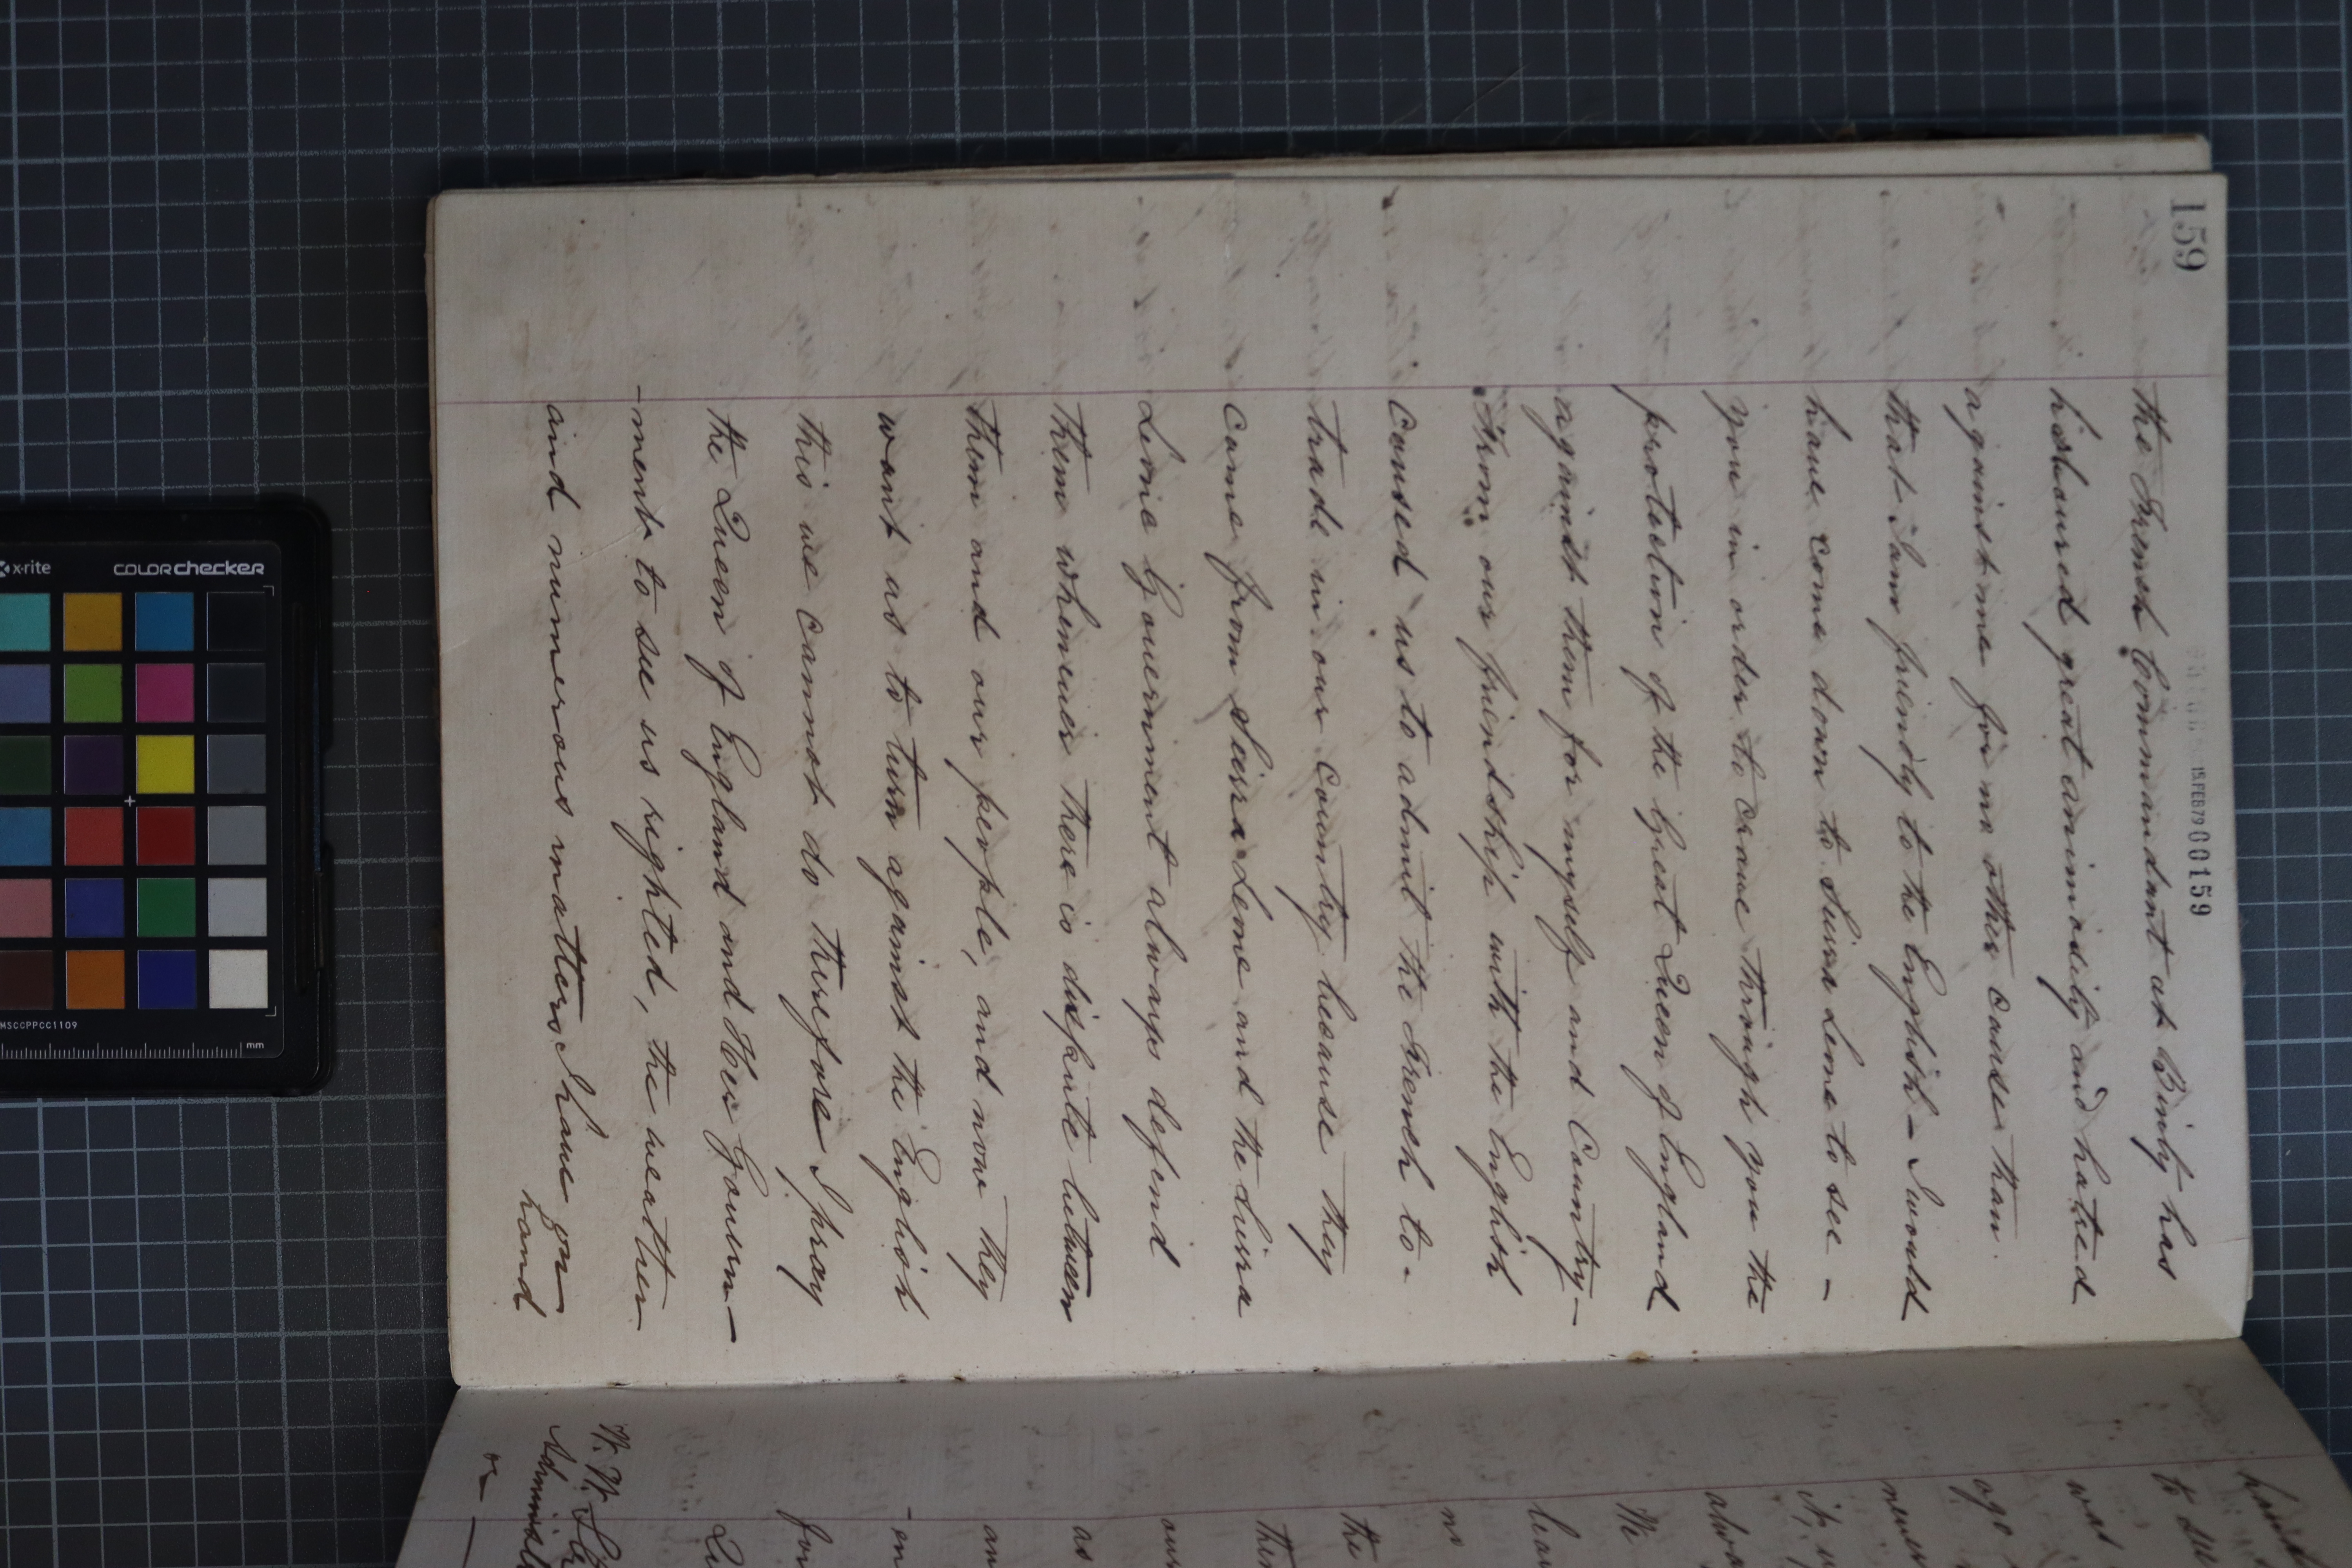 159
15 FEB 79 000159
the French Commandant at Binty has
his loured great animosity and hatred
against me for no other cause than
that I am friendly to the English – I would
have come down to Sierra Leone to see –
you in order to crave through you the
protection of the Great Queen of England
against them for myself and Country –
From our friendship with the English
caused us to admit the French to -
trade in our Country because they
came from Sierra Leone and the Sierra
Leone Government always defend
them whenever there is dispute between
them and our people, and now they
want us to turn against the English
this we cannot do therefore I pray
the Queen of England and Her Govern-
-ment to see us righted, the weather
and numerous matters I have on
hand
have
to see
was
ago
never
it,
alwa
We
lea
no
the
ther
our
as
an
-en
for
Qu
W. W. St
Administ
x-rite
colorchecker
MSCCPPCC1109
mm